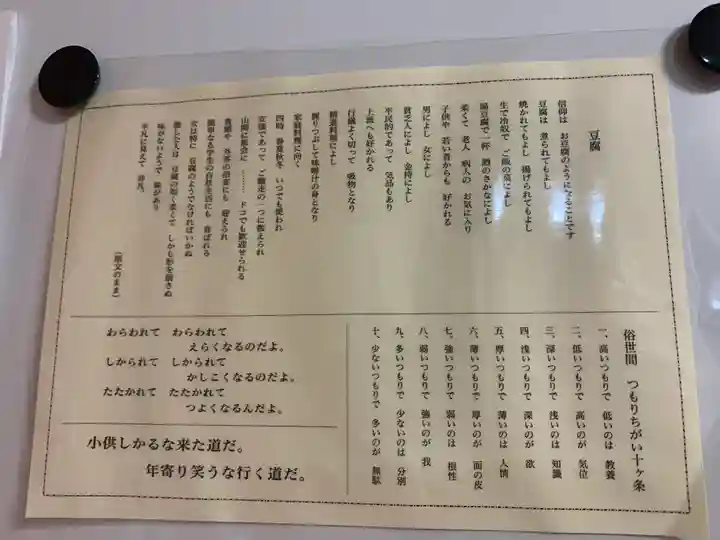 豆腐
信仰は お豆腐のようになることです
豆腐は 煮られてもよし
焼かれてもよし 揚げられてもよし
生で冷奴で ご飯の菜によし
湯豆腐で一杯 酒のさかなによし
柔くて 老人 病人の お気に入り
子供や 若い者からも 好かれる
男によし 女によし
貧乏人によし 金持によし
平民的であって 気品もあり
上流へも好かれる
行儀よく切って 吸物となり
精進料理によし
握りつぶして味噌汁の身となり
家庭料理に向く
四時 春夏秋冬 いつでも使われ
安価であって ご馳走の一つに数えられ
山間に都会に ……… ドコでも歓迎せられる
貴顕や 外客の招宴にも 迎えられ
簡単なる学生の自炊生活にも 喜ばれる
女は特に 豆腐のようでなければいかぬ
徹した人は 豆腐の如く柔くて しかも形を崩さぬ
味がないようで 味があり
平凡に見えて 非凡
(原文のまま)
俗世間 つもりちがい十ヶ条
一、高いつもりで 低いのは 教養
二、低いつもりで 高いのが 気位
三、深いつもりで 浅いのは 知識
四、浅いつもりで 深いのが 欲
五、厚いつもりで 薄いのは 人情
六、薄いつもりで 厚いのが 面の皮
七、強いつもりで 弱いのは 根性
八、弱いつもりで 強いのが 我
九、多いつもりで 少ないのは 分別
十、少ないつもりで 多いのが 無駄
わらわれて わらわれて
えらくなるのだよ。
しかられて しかられて
かしこくなるのだよ。
たたかれて たたかれて
つよくなるんだよ。
小供しかるな来た道だ。
年寄り笑うな行く道だ。